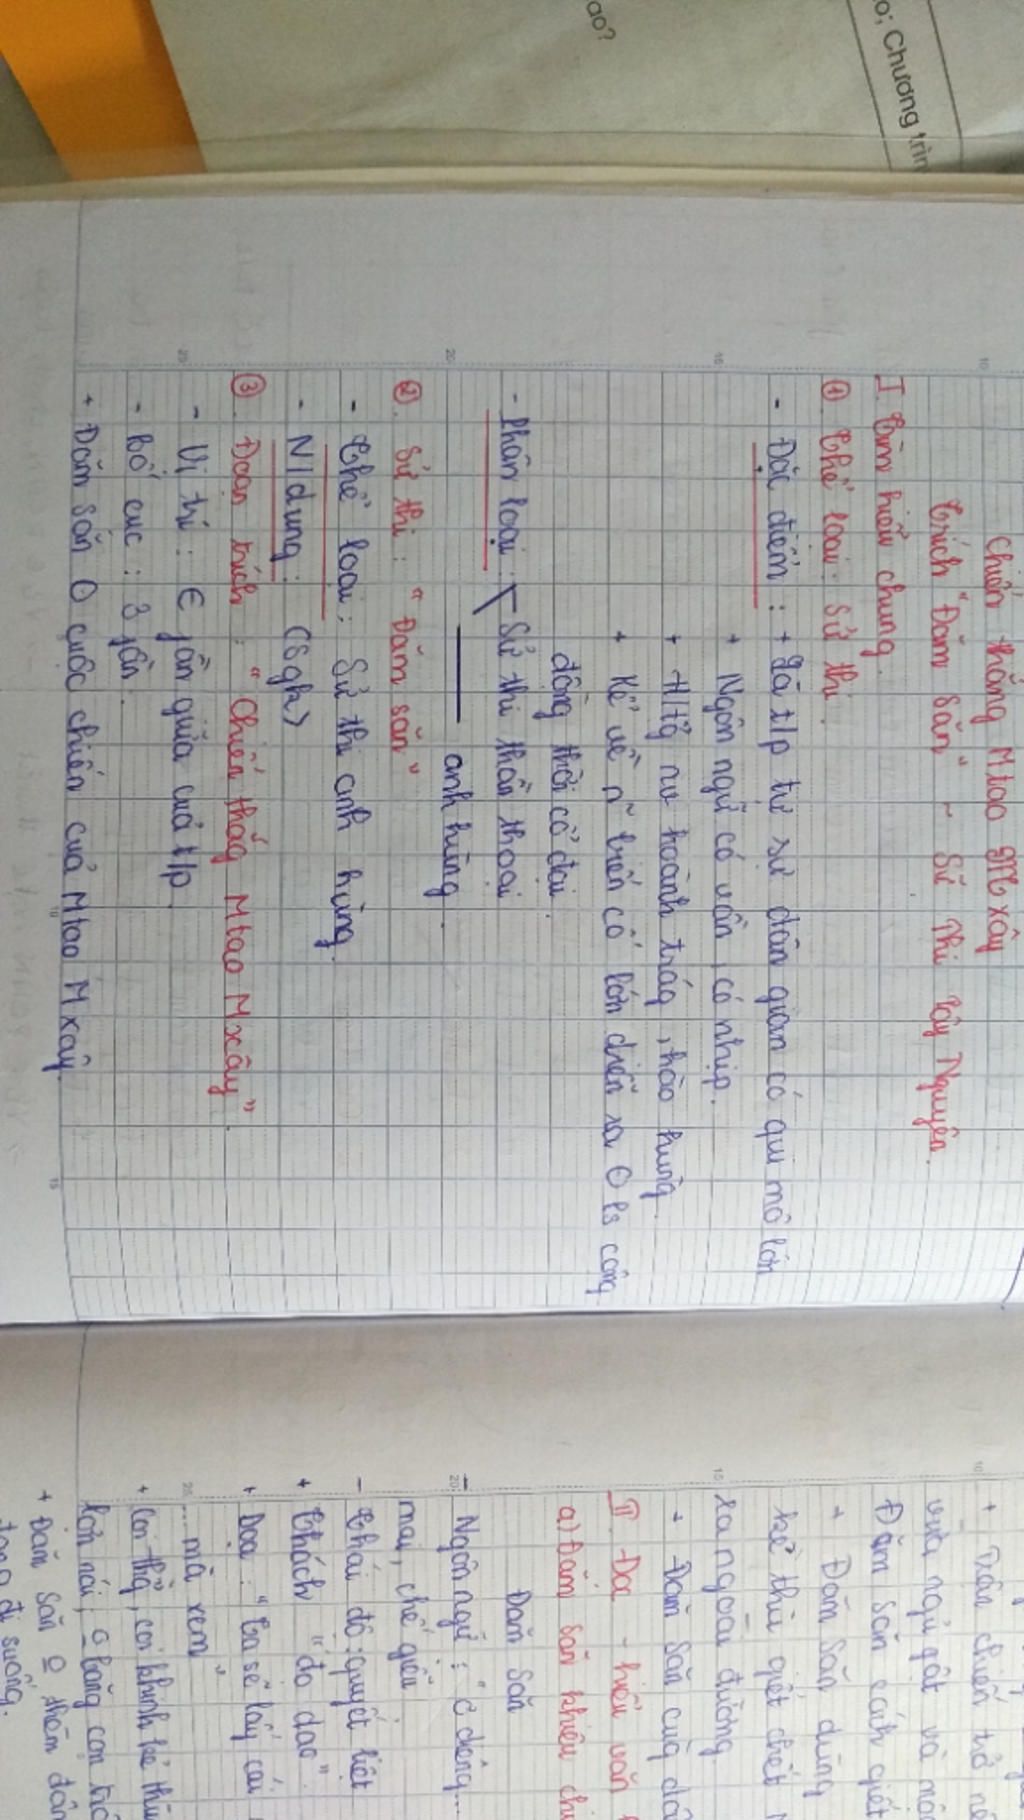 ao?
o; Chương trìn
Chiến thắng Mtao Mxây
Trích "Đăm Săn" - Sử thi Tây Nguyên.
I. Tìm hiểu chung.
① Thể loại: Sử thi.
- Đặc điểm: + Là t/p tự sự dân gian có qui mô lớn
+ Ngôn ngữ có vần, có nhịp.
+ H/tg nv hoành tráng, hào hùng.
+ Kể về n~ biến cố lớn diễn ra O l/s cộng
đồng thời cổ đại.
- Phân loại: Sử thi thần thoại
anh hùng.
②. Sử thi: "Đăm Săn"
- Thể loại: Sử thi anh hùng.
- N/dung: (Sgk)
③. Đoạn trích: "Chiến thắng Mtao Mxây".
- Vị trí: Є phần giữa của t/p.
- Bố cục: 3 phần.
+ Đăm Săn O cuộc chiến của Mtao Mxây.
+ Trần chiến trở nê
vừa ngủ gật và mà
Đăm Săn cách giết
+ Đăm Săn dùng
kẻ thù giết chết
ra ngoài đường
+ Đăm Săn cùng dâ
II. Đọc - hiểu văn
a) Đăm Săn khiêu chi
Đăm Săn
- Ngôn ngữ: "
mai, chế giễu.
- Thái độ: quyết liệt
+ Thách "đọ dao".
+ Dọa: "Ta sẽ lấy cái
... mà xem"
+ Coi thg, coi khinh kẻ thù
lợn nái, o bằng con trâ
+ Đăm Săn o thèm đâm
đang đi xuống.